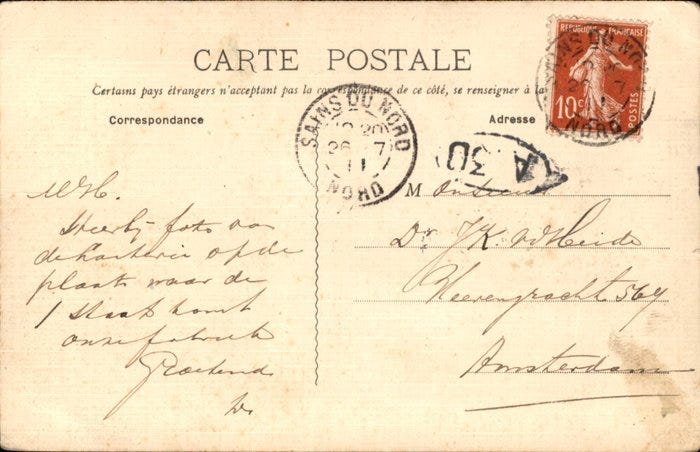 CARTE POSTALE
Certains pays étrangers n'acceptant pas la correspondance de ce côté, se renseigner à la
Correspondance
Adresse
REPUBLIQUE FRANÇAISE
10c
POSTES
SAINS DU NORD
26 - 7
11
NORD
SAINS DU NORD
NORD
W.H.
Hierbij foto van
de op de
plaats waar de
komt
onze fabriek
Groetend
M
Dr. J.K. v.d. Heide
Heerengracht 564
Amsterdam